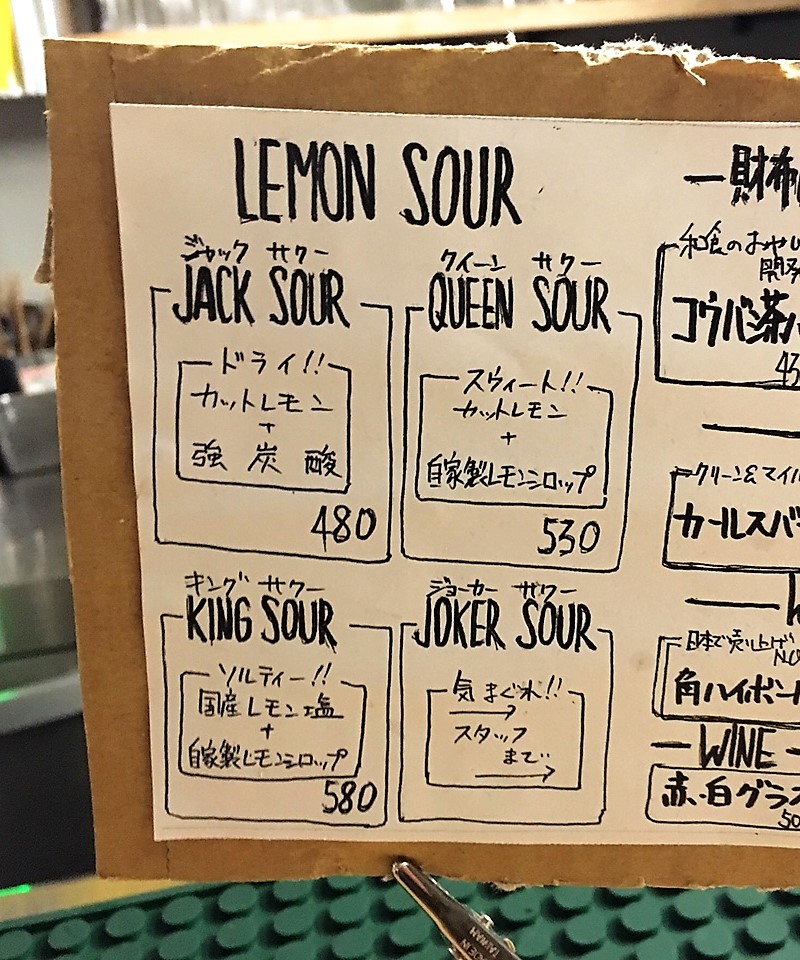 LEMON SOUR
ジャック サワー
JACK SOUR
ドライ!!
カットレモン
+
強炭酸
480
クイーン サワー
QUEEN SOUR
スウィート!!
カットレモン
+
自家製レモンシロップ
530
キング サワー
KING SOUR
ソルティー!!
国産レモン塩
+
自家製レモンシロップ
580
ジョーカー サワー
JOKER SOUR
気まぐれ!!
スタッフ
まで
財布
和食のおやじ
コウバ茶ハ
クリーン&マイル
カールスバ
日本で売り上げ
角ハイボー
WINE
赤・白グラス
50
MADE IN
TAIWAN